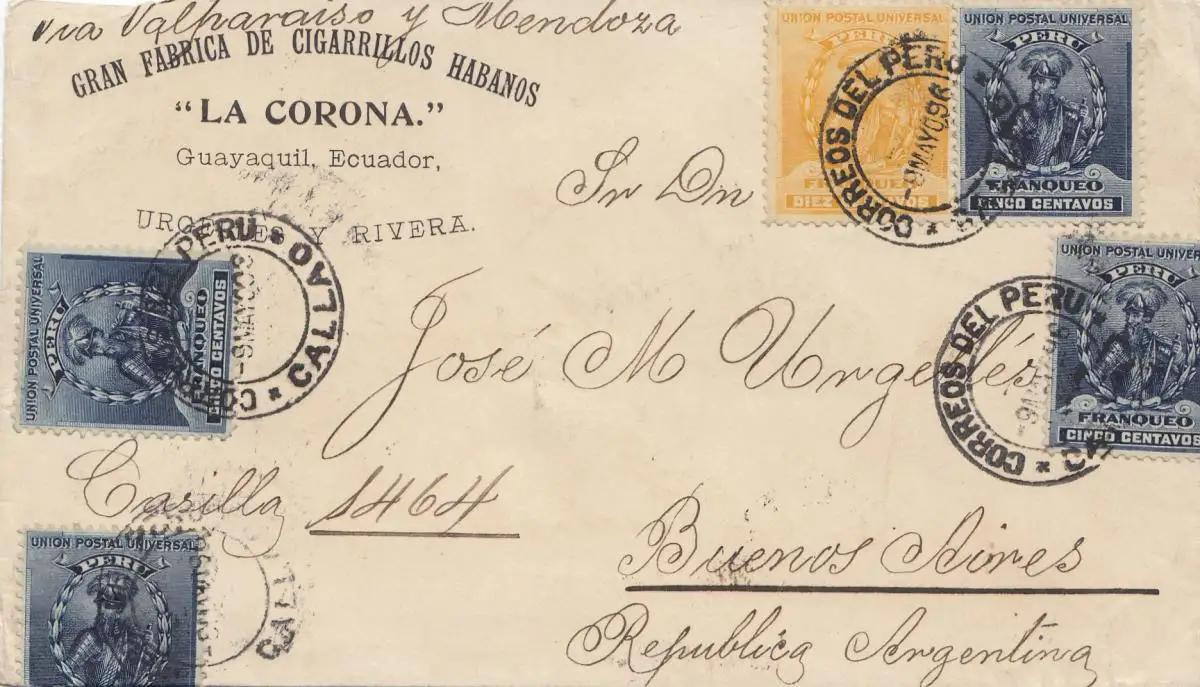 Via Valharaiso y Mendoza
GRAN FABRICA DE CIGARRILLOS HABANOS
"LA CORONA."
Guayaquil, Ecuador,
Y RIVERA.
UNION POSTAL UNIVERSAL
PERU
FRANQUEO
DIEZ CENTAVOS
CORREOS DEL PERU * CALLAO *
9 MAYO 96
UNION POSTAL UNIVERSAL
PERU
FRANQUEO
CINCO CENTAVOS
Sr Dn
José M Urgellés
UNION POSTAL UNIVERSAL
PERU
FRANQUEO
CINCO CENTAVOS
DEL PERU * CALLAO *
9 MAYO
UNION POSTAL UNIVERSAL
PERU
FRANQUEO
CINCO CENTAVOS
CORREOS DEL PERU *
9 MAYO
Casilla 1464
Buenos Aires
Republica Argentina
UNION POSTAL UNIVERSAL
PERU